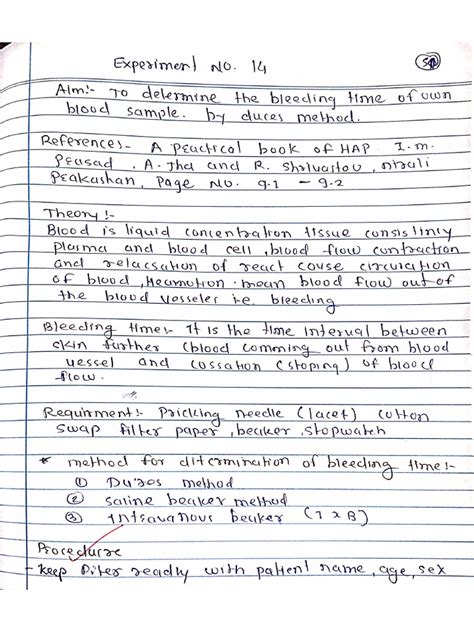 Experiment No. 14
Aim:- To determine the bleeding time of own
blood sample. by duces method.
References:- A peactical book of HAP I.m.
Peasad, A. Jha and R. Shrivastav, nirali
Peakashan, Page No. 9.1 - 9.2
Theory:-
Blood is liquid concentration tissue consisting
plasma and blood cell, blood flow contraction
and relacsation of react couse circulation
of blood, Heamotion. mean blood flow out of
the blood vesseles i.e. bleeding
Bleeding time:- It is the time interval between
skin further (blood comming out from blood
vessel and cossation (stoping) of blood
flow.
Requirment:- Pricking needle (lacet) cotton
swap filter paper, beaker, stopwatch
* method for ditermination of bleeding time:-
① Dures method
② saline beaker method
③ Intravanous beaker (I x B)
Procedure
- keep filter readly with patient name, age, sex